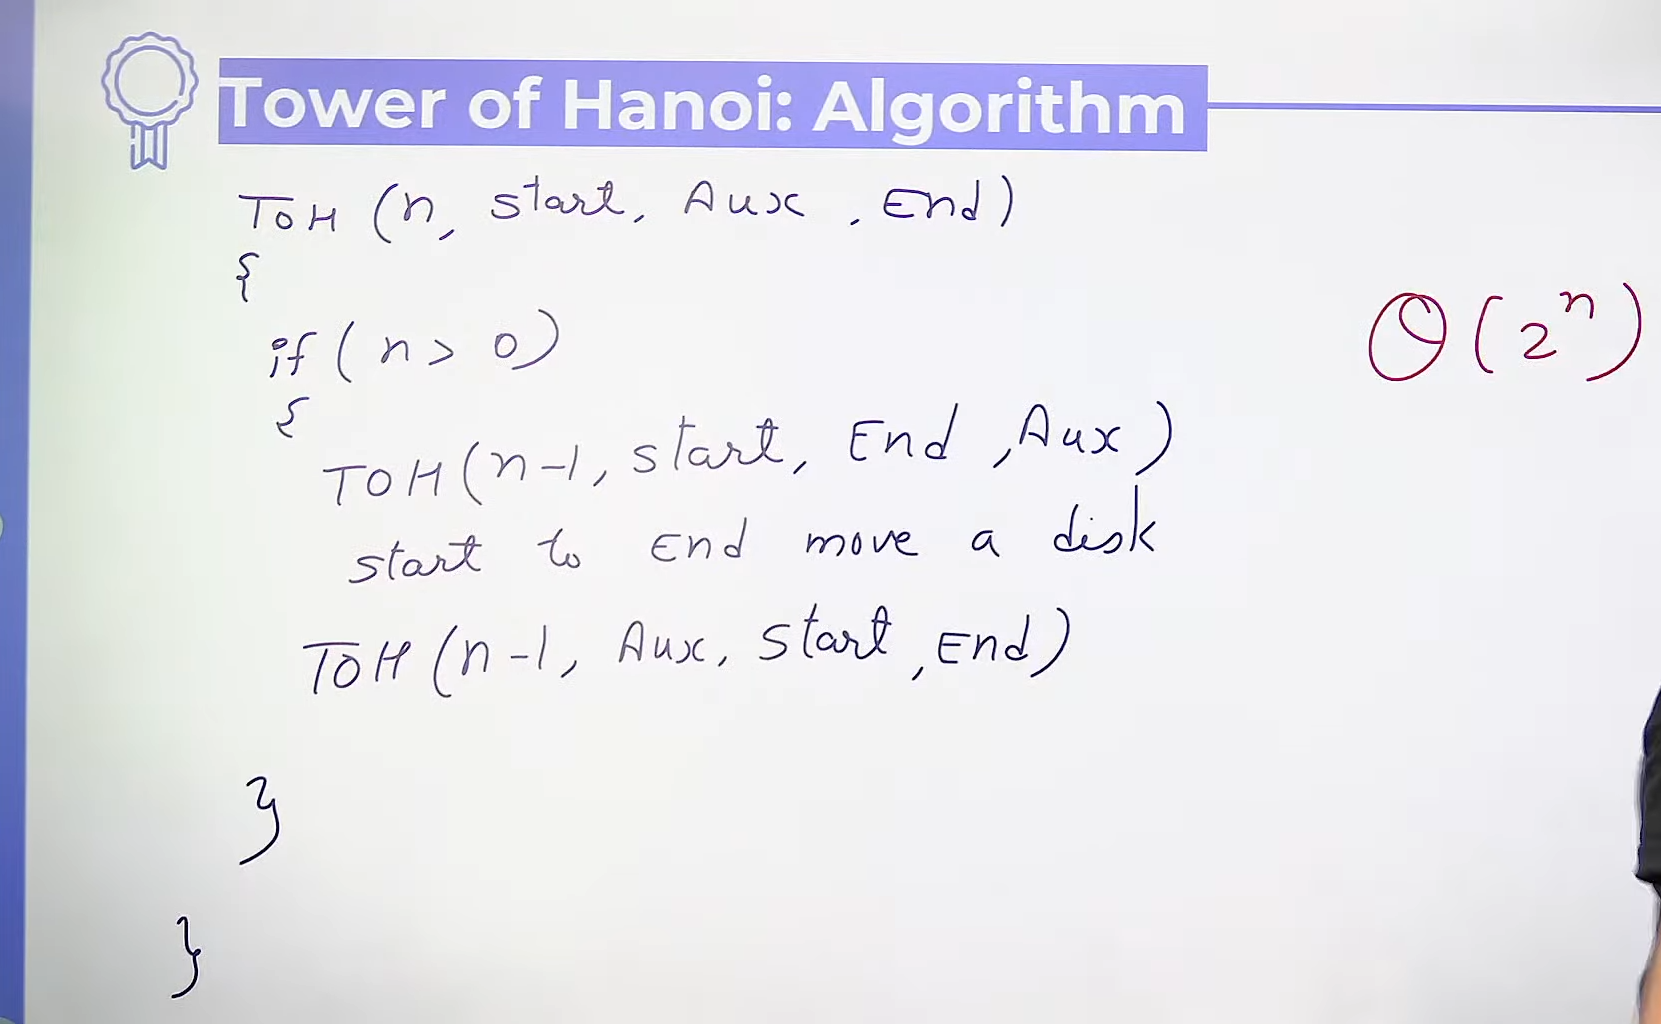 Tower of Hanoi: Algorithm
TOH (n, start, Aux, End)
{
if (n > 0)
O(2ⁿ)
{
TOH (n-1, start, End, Aux)
start to End move a disk
TOH (n-1, Aux, start, End)
}
}